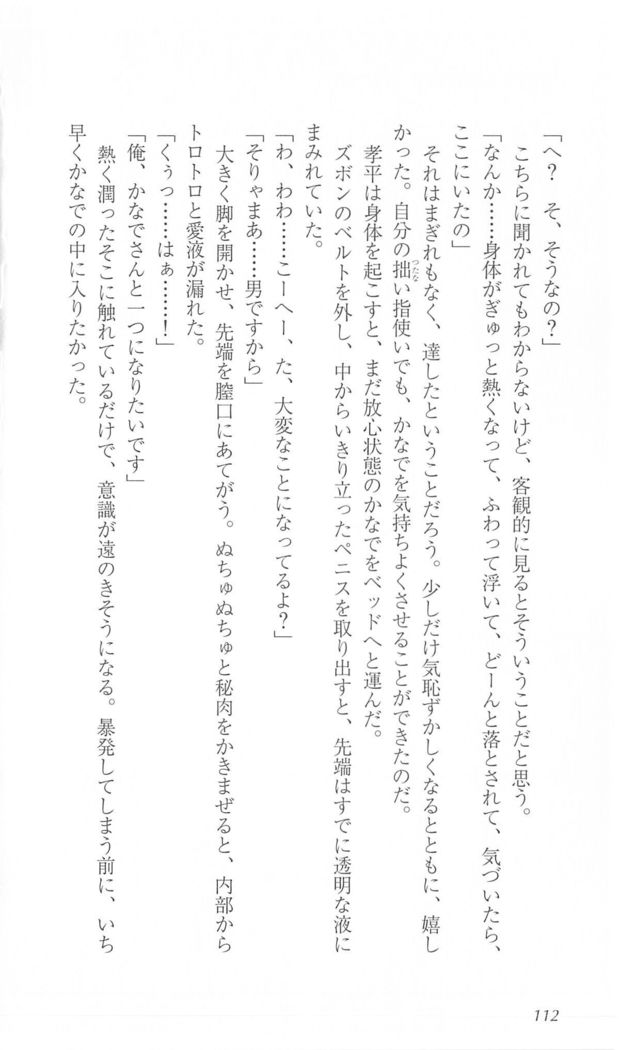 「へ？　そ、そうなの？」
こちらに聞かれてもわからないけど、客観的に見るとそういうことだと思う。
「なんか……身体がぎゅっと熱くなって、ふわって浮いて、どーんと落とされて、気づいたら、
ここにいたの」
それはまぎれもなく、達したということだろう。少しだけ気恥ずかしくなるとともに、嬉し
かった。自分の拙い指使いでも、かなでを気持ちよくさせることができたのだ。
つたな
孝平は身体を起こすと、まだ放心状態のかなでをベッドへと運んだ。
ズボンのベルトを外し、中からいきり立ったペニスを取り出すと、先端はすでに透明な液に
まみれていた。
「わ、わわ……こーへー、た、大変なことになってるよ？」
「そりゃまあ……男ですから」
大きく脚を開かせ、先端を膣口にあてがう。ぬちゅぬちゅと秘肉をかきまぜると、内部から
トロトロと愛液が漏れた。
「くぅっ……はぁ……！」
「俺、かなでさんと一つになりたいです」
熱く潤ったそこに触れているだけで、意識が遠のきそうになる。暴発してしまう前に、いち
早くかなでの中に入りたかった。
112